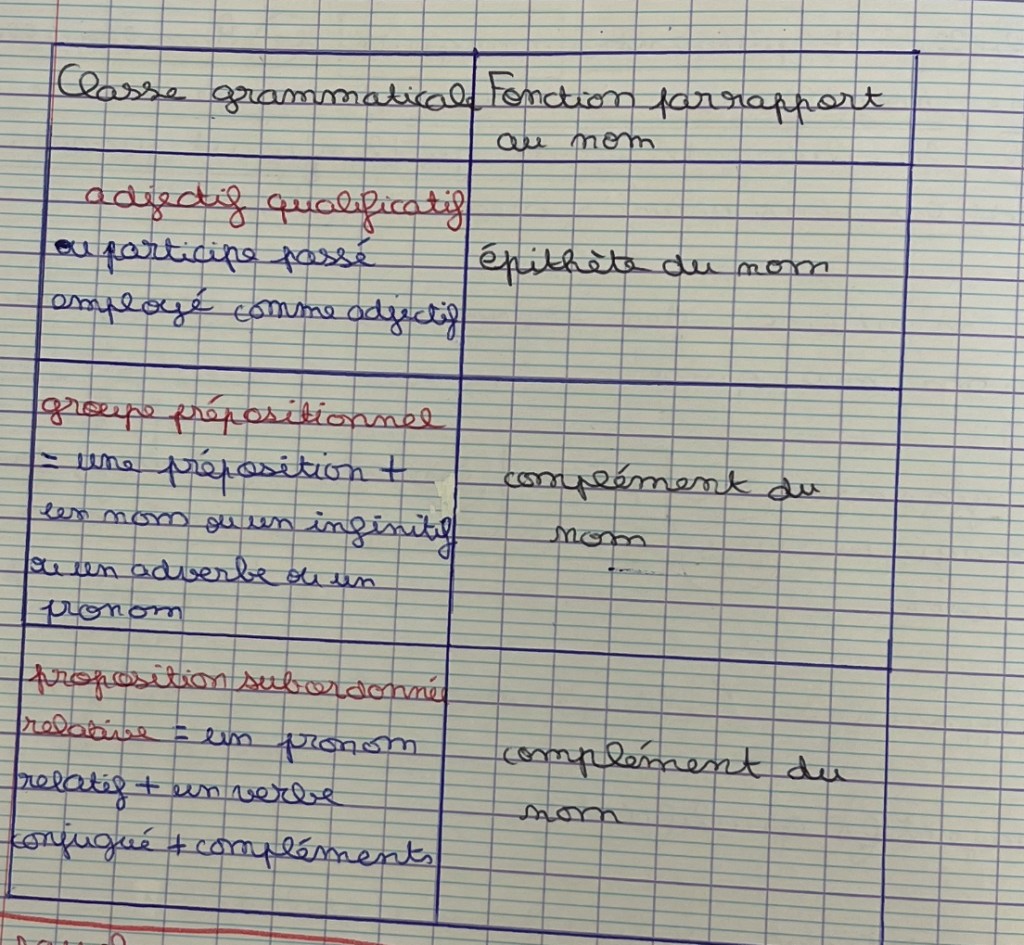 Classe grammatical
Fonction par rapport
au nom
adjectif qualificatif
ou participe passé
employé comme adjectif
épithète du nom
groupe prépositionnel
= une préposition +
un nom ou un infinitif
ou un adverbe ou un
pronom
complément du
nom
proposition subordonné
relative = un pronom
relatif + un verbe
conjugué + compléments
complément du
nom